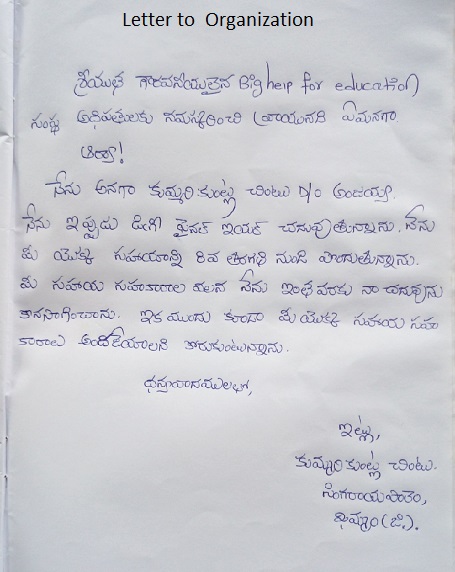 Letter to Organization
శ్రీయుత గౌరవనీయులైన Big help for education
సంస్థ అధిపతులకు నమస్కరించి వ్రాయునది ఏమనగా
ఆర్యా!
నేను అనగా కుమ్మరికుంట్ల చింటు D/o అంజయ్య.
నేను ఇప్పుడు డిగ్రీ ఫైనల్ ఇయర్ చదువుతున్నాను. నేను
మీ యొక్క సహాయాన్ని 8వ తరగతి నుండి పొందుతున్నాను.
మీ సహాయ సహకారాల వలన నేను ఇంత వరకు నా చదువును
కొనసాగించాను. ఇక ముందు కూడా మీ యొక్క సహాయ సహ
కారాలు అందజేయాలని కోరుకుంటున్నాను.
ధన్యవాదములతో,
ఇట్లు,
కుమ్మరికుంట్ల చింటు.
సింగరాయపాలెం,
ఖమ్మం(జి).